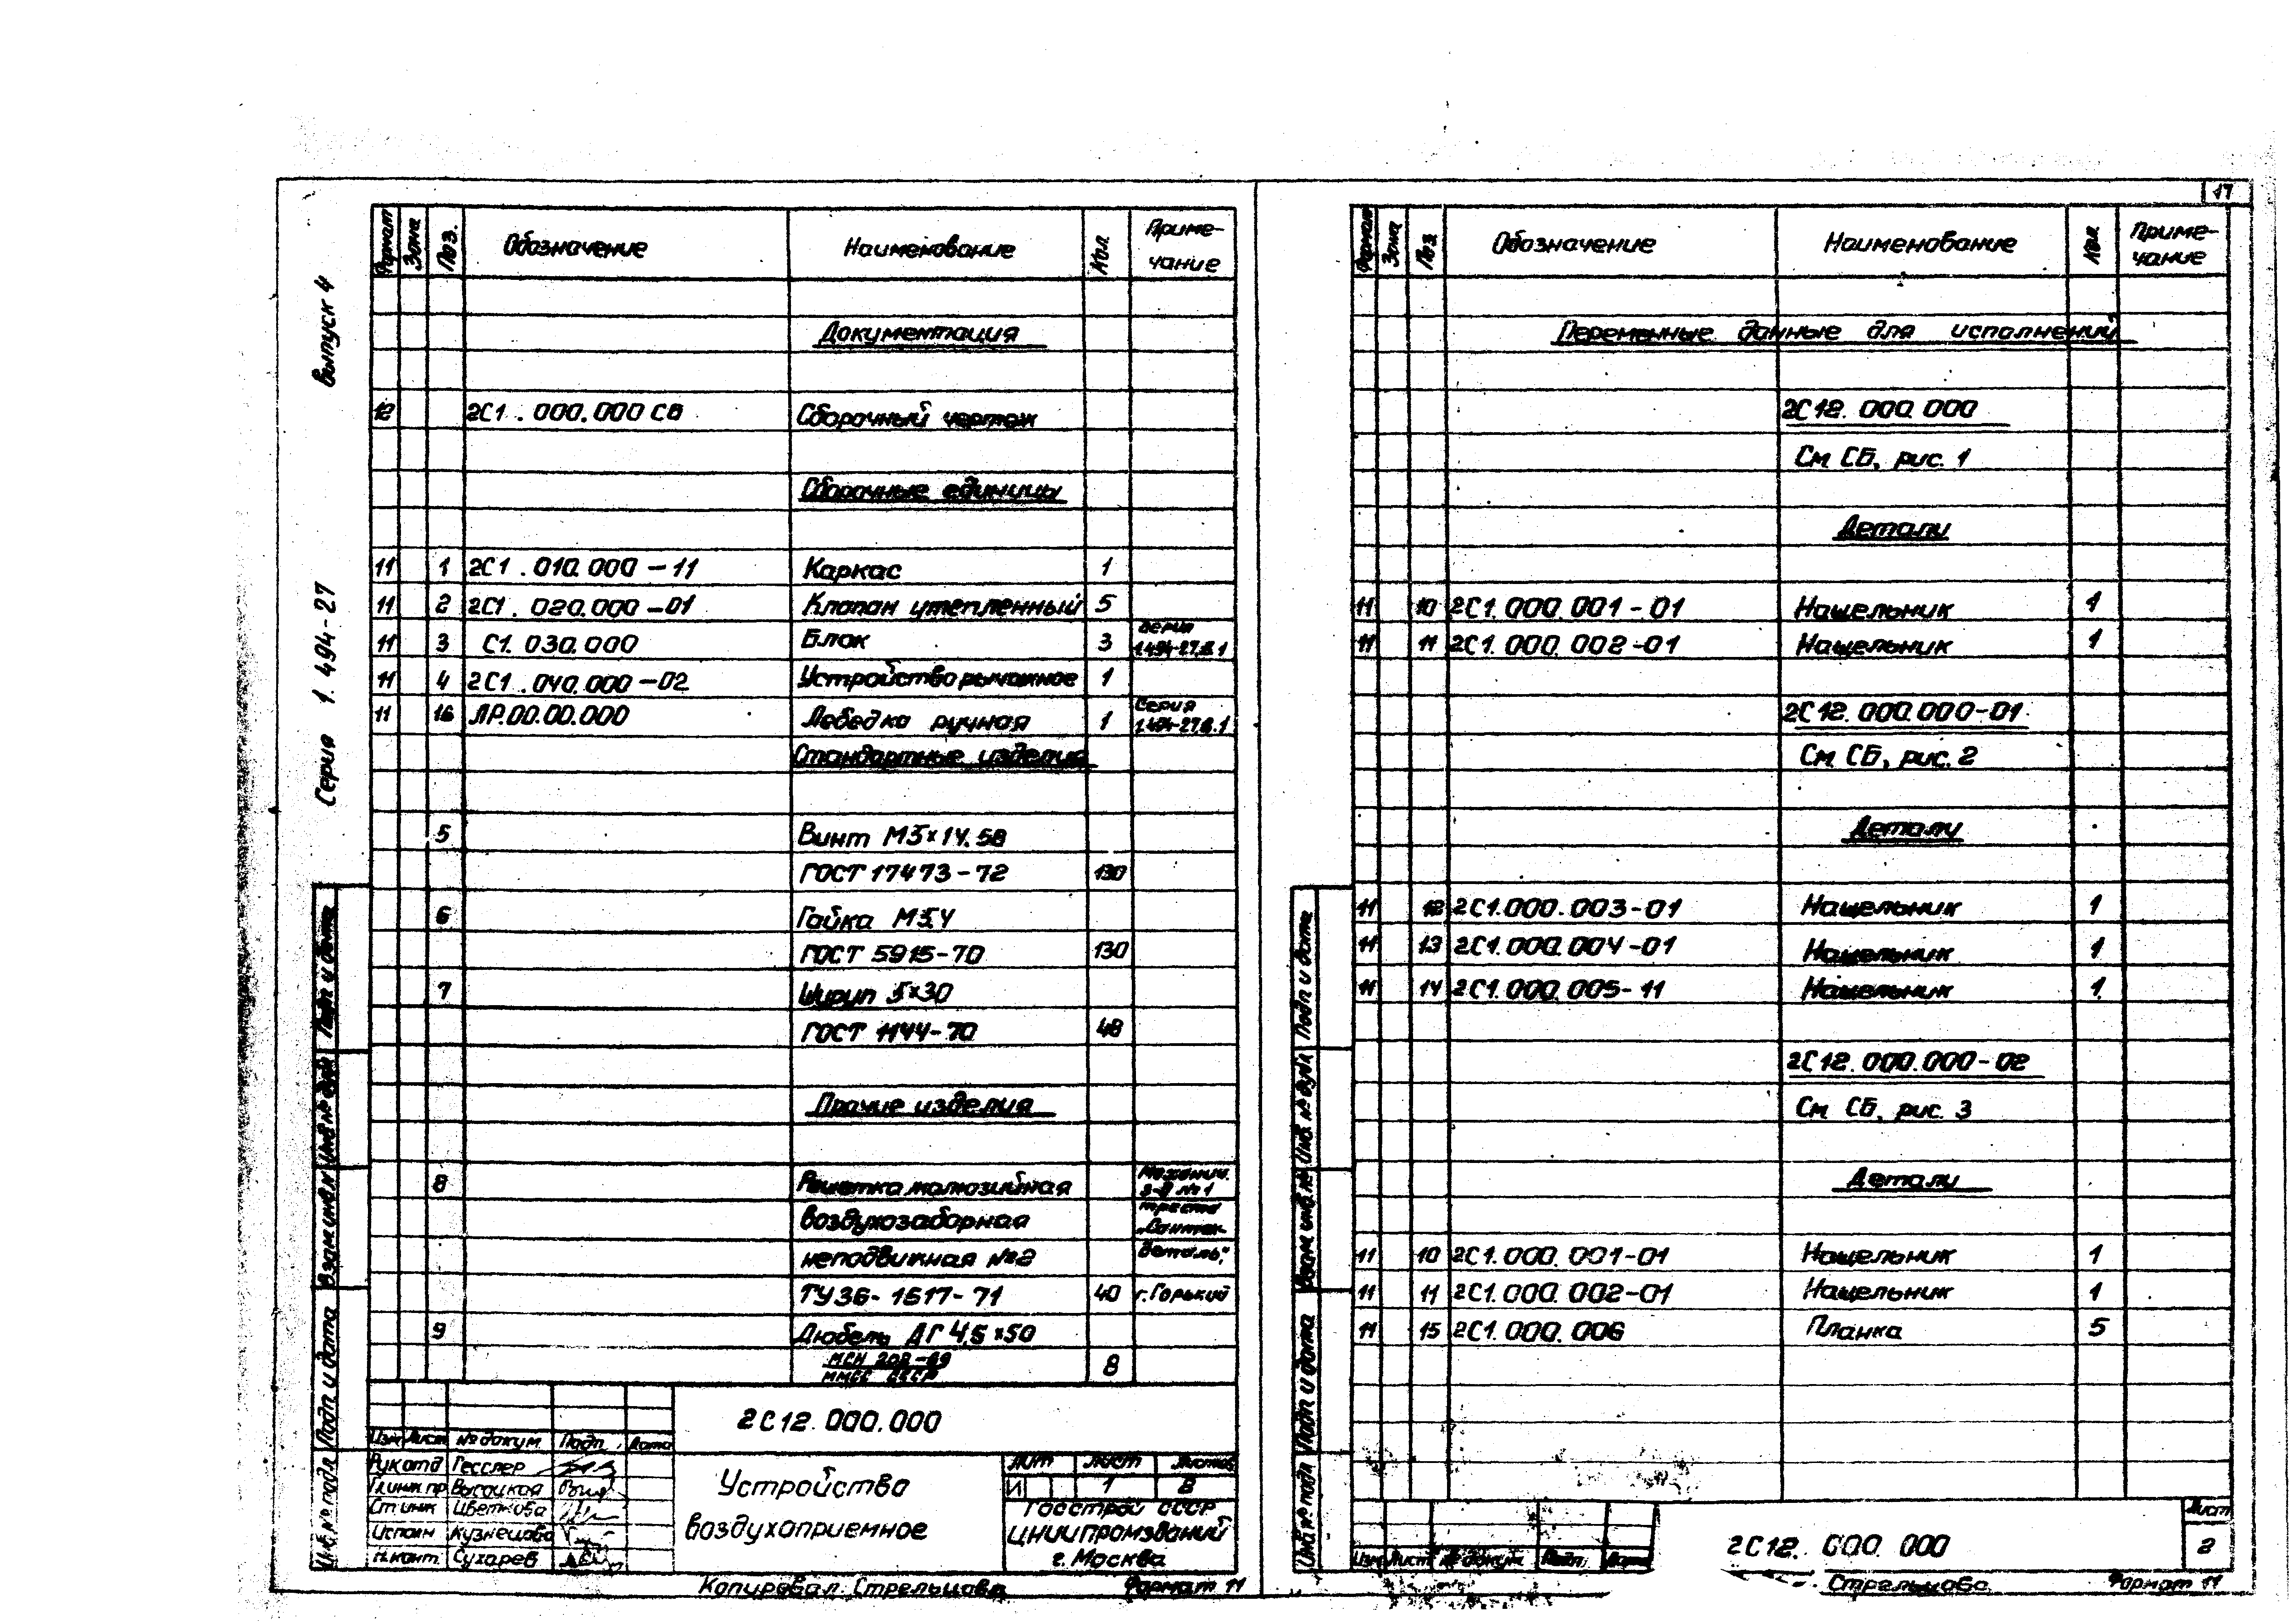 17
Выпуск 4
Серия 1.494-27
Формат Зона Поз. Обозначение Наименование Кол. Приме-
чание
Документация
12 2С1 . 000.000 СБ Сборочный чертеж
Сборочные единицы
11 1 2С1 . 010.000 - 11 Каркас 1
11 2 2С1 . 020.000 - 01 Клапан утепленный 5
11 3 С1. 030.000 Блок 3 Серия
1.494-27,в.1
11 4 2С1 . 040.000 - 02 Устройство рычажное 1
11 16 ЛР.00.00.000 Лебедка ручная 1 Серия
1.494-27,в.1
Стандартные изделия
5 Винт М5×14.58
ГОСТ 17473-72 130
6 Гайка М5.4
ГОСТ 5915-70 130
7 Шуруп 5×30
ГОСТ 1144-70 48
Прочие изделия
8 Решетка жалюзийная Механич.
з-д №1
воздухозаборная треста
„Сантех-
неподвижная №2 деталь",
ТУ36-1517-71 40 г. Горький
9 Дюбель ДГ 4,5×50
МСН 202-69
ММСС СССР 8
2С12.000.000
Изм Лист № докум. Подп. Дата
Рук отд Гесслер
Гл инж пр Высоцкая
Ст инж Цветкова
Исполн Кузнецова
Н.конт. Сухарев
Устройство
воздухоприемное
Лит Лист Листов
И 1 8
Госстрой СССР
ЦНИИПРОМЗДАНИЙ
г. Москва
Копировал: Стрельцова Формат 11
Инв.№ подл Подп и дата Взам инв.№ Инв № дубл Подп и дата
Формат Зона Поз Обозначение Наименование Кол. Приме-
чание
Переменные данные для исполнений
2С12.000.000
См СБ, рис. 1
Детали
11 10 2С1.000.001-01 Нащельник 1
11 11 2С1.000.002-01 Нащельник 1
2С12.000.000-01
См СБ, рис. 2
Детали
11 12 2С1.000.003-01 Нащельник 1
11 13 2С1.000.004-01 Нащельник 1
11 14 2С1.000.005-11 Нащельник 1
2С12.000.000-02
См СБ, рис. 3
Детали
11 10 2С1.000.001-01 Нащельник 1
11 11 2С1.000.002-01 Нащельник 1
11 15 2С1.000.006 Планка 5
Изм Лист № докум Подп. Дата
2С12. 000. 000
Лист
2
Стрельцова Формат 11
Инв № подл Подп и дата Взам инв.№ Инв. № дубл Подп и дата